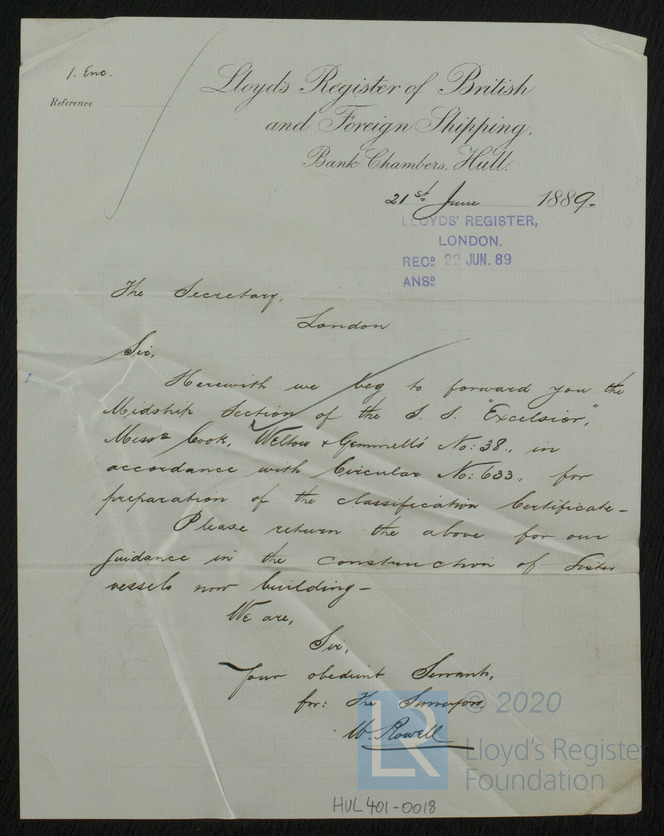 1. Enc.
Reference
Lloyds Register of British
and Foreign Shipping,
Bank Chambers, Hull.
21st June 1889-
LLOYDS' REGISTER,
LONDON.
RECD 22 JUN. 89
ANSD
The Secretary,
London
Sir,
Herewith we beg to forward you the
Midship Section of the S. S. "Excelsior",
Messrs Cook, Welton & Gemmell's No: 38., in
accordance with Circular No: 633., for
preparation of the classification Certificate -
Please return the above for our
guidance in the construction of Sister
vessels now building -
We are,
Sir,
Your obedient Servants,
for: The Surveyors,
W. Rowell
© 2020
LR
Lloyd's Register
Foundation
HUL401-0018